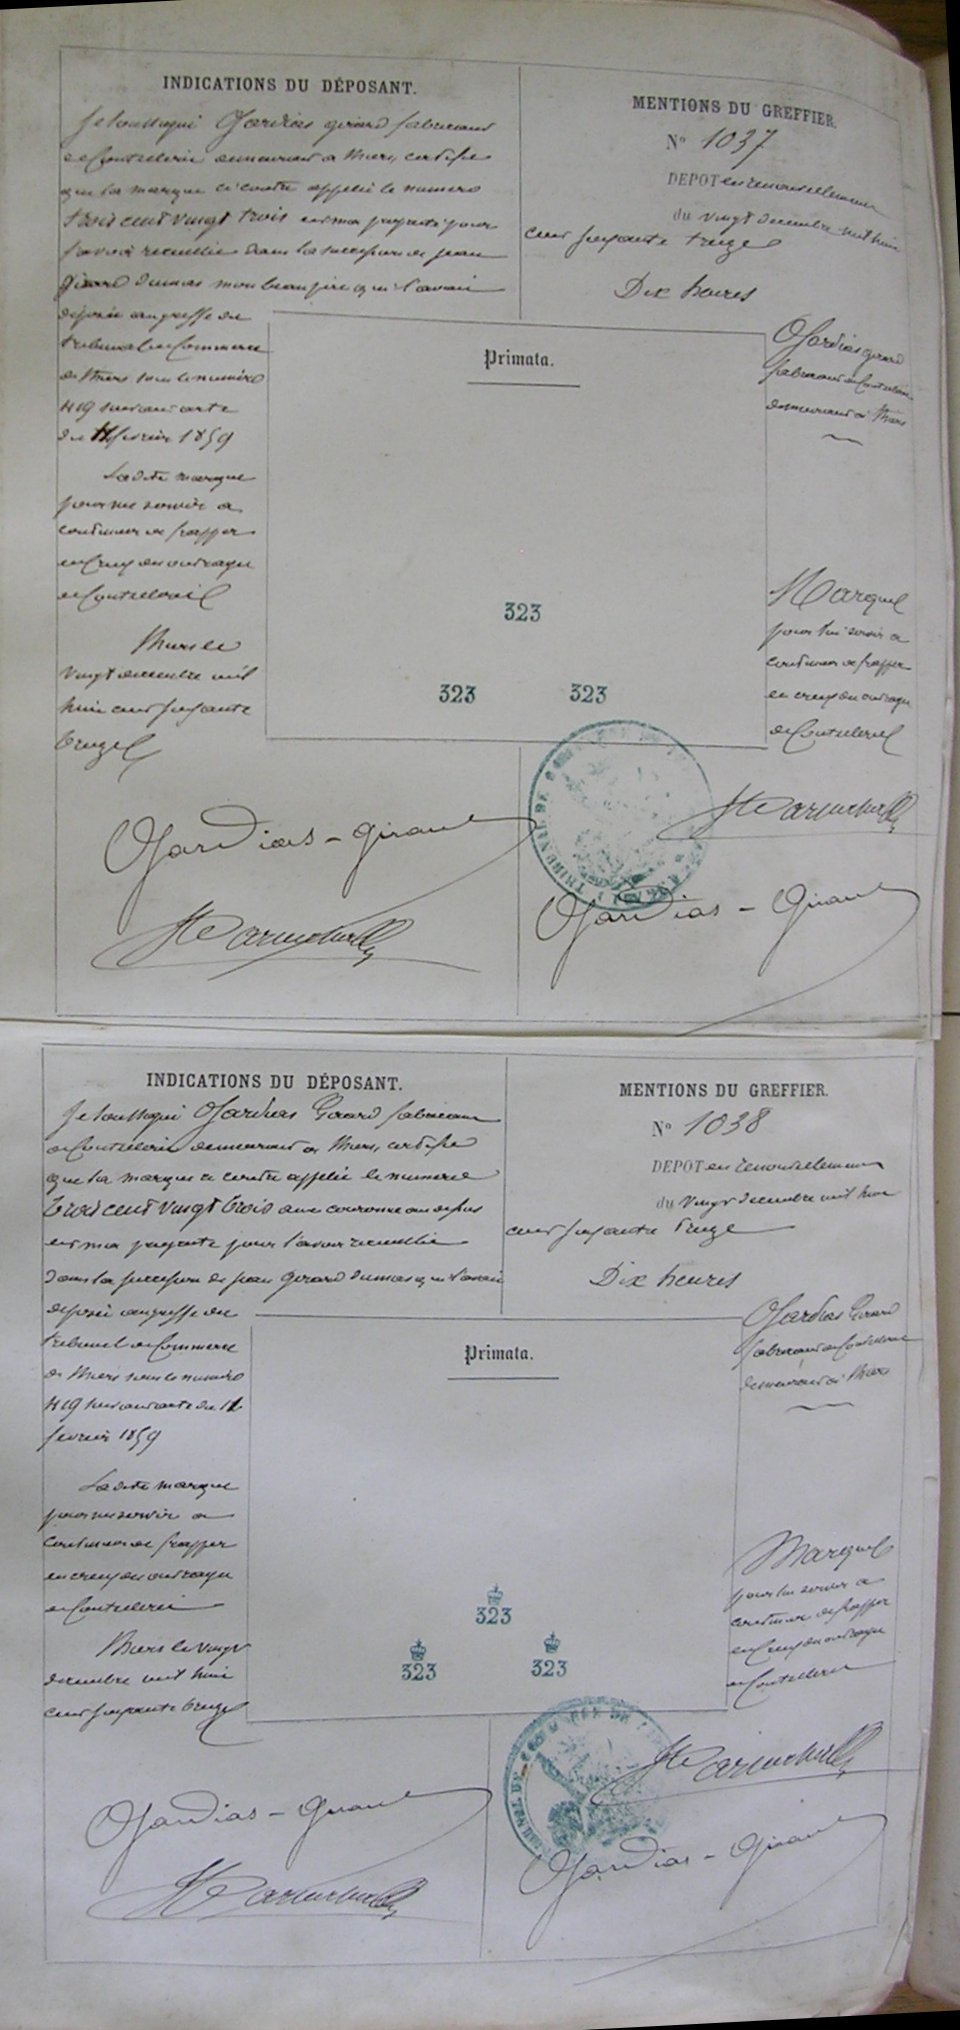 INDICATIONS DU DÉPOSANT.
Je soussigné Ojardias girard fabricant
de Coutellerie demeurant a thiers, certifie
que la marque ci contre appelée le numero
trois cent vingt trois est ma propriété pour
l'avoir recueillie dans la succession de jean
girard dumas mon beau père qui l'avait
déposée au greffe du
tribunal de Commerce
de thiers sous le numéro
419 suivant acte
du février 1859
Ladite marque
pour me servir a
continuer de frapper
en creux des ouvrages
de Coutellerie
Thiers le
vingt decembre mil
huit cent soixante
treize
Ojardias-girard
MENTIONS DU GREFFIER.
N° 1037
DEPOT en renouvellement
du vingt decembre mil huit
cent soixante treize
Dix heures
Primata.
323
323 323
Ojardias girard
fabricant de Coutellerie
demeurant à Thiers
Marque
pour lui servir a
continuer de frapper
en creux des ouvrages
de Coutellerie
TRIBUNAL DE
Ojardias-Girard
INDICATIONS DU DÉPOSANT.
Je soussigné Ojardias Girard fabricant
de Coutellerie demeurant a thiers, certifie
que la marque ci contre appelée le numero
trois cent vingt trois une couronne au dessus
est ma propriété pour l'avoir recueillie
dans la succession de jean Girard dumas qui l'avait
déposée au greffe du
tribunal de Commerce
de thiers sous le numéro
419 suivant acte du 12
fevrier 1859
Ladite marque
pour me servir a
continuer de frapper
en creux des ouvrages
de Coutellerie
Thiers le vingt
decembre mil huit
cent soixante treize
Ojardias-Girard
MENTIONS DU GREFFIER.
N° 1038
DEPOT en renouvellement
du vingt decembre mil huit
cent soixante treize
Dix heures
Primata.
323
323 323
Ojardias Girard
fabricant de Coutellerie
demeurant à Thiers
Marque
pour lui servir a
continuer de frapper
en creux des ouvrages
de Coutellerie
Ojardias-Girard